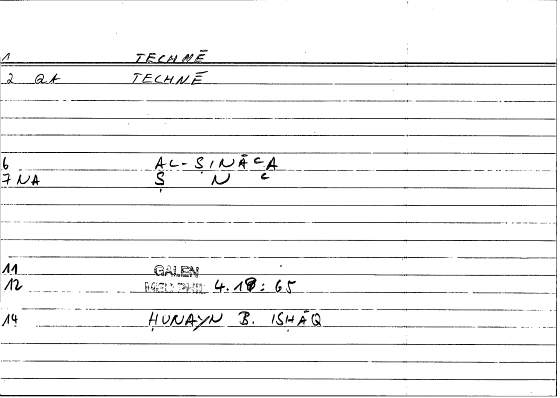 1 TECHMĒ
2 QA TECHNĒ
6 AL-ṢINĀʿA
7 NA Ṣ N ʿ
11 GALEN
12 4.18:65
14 ḤUNAYN B. ISḤĀQ